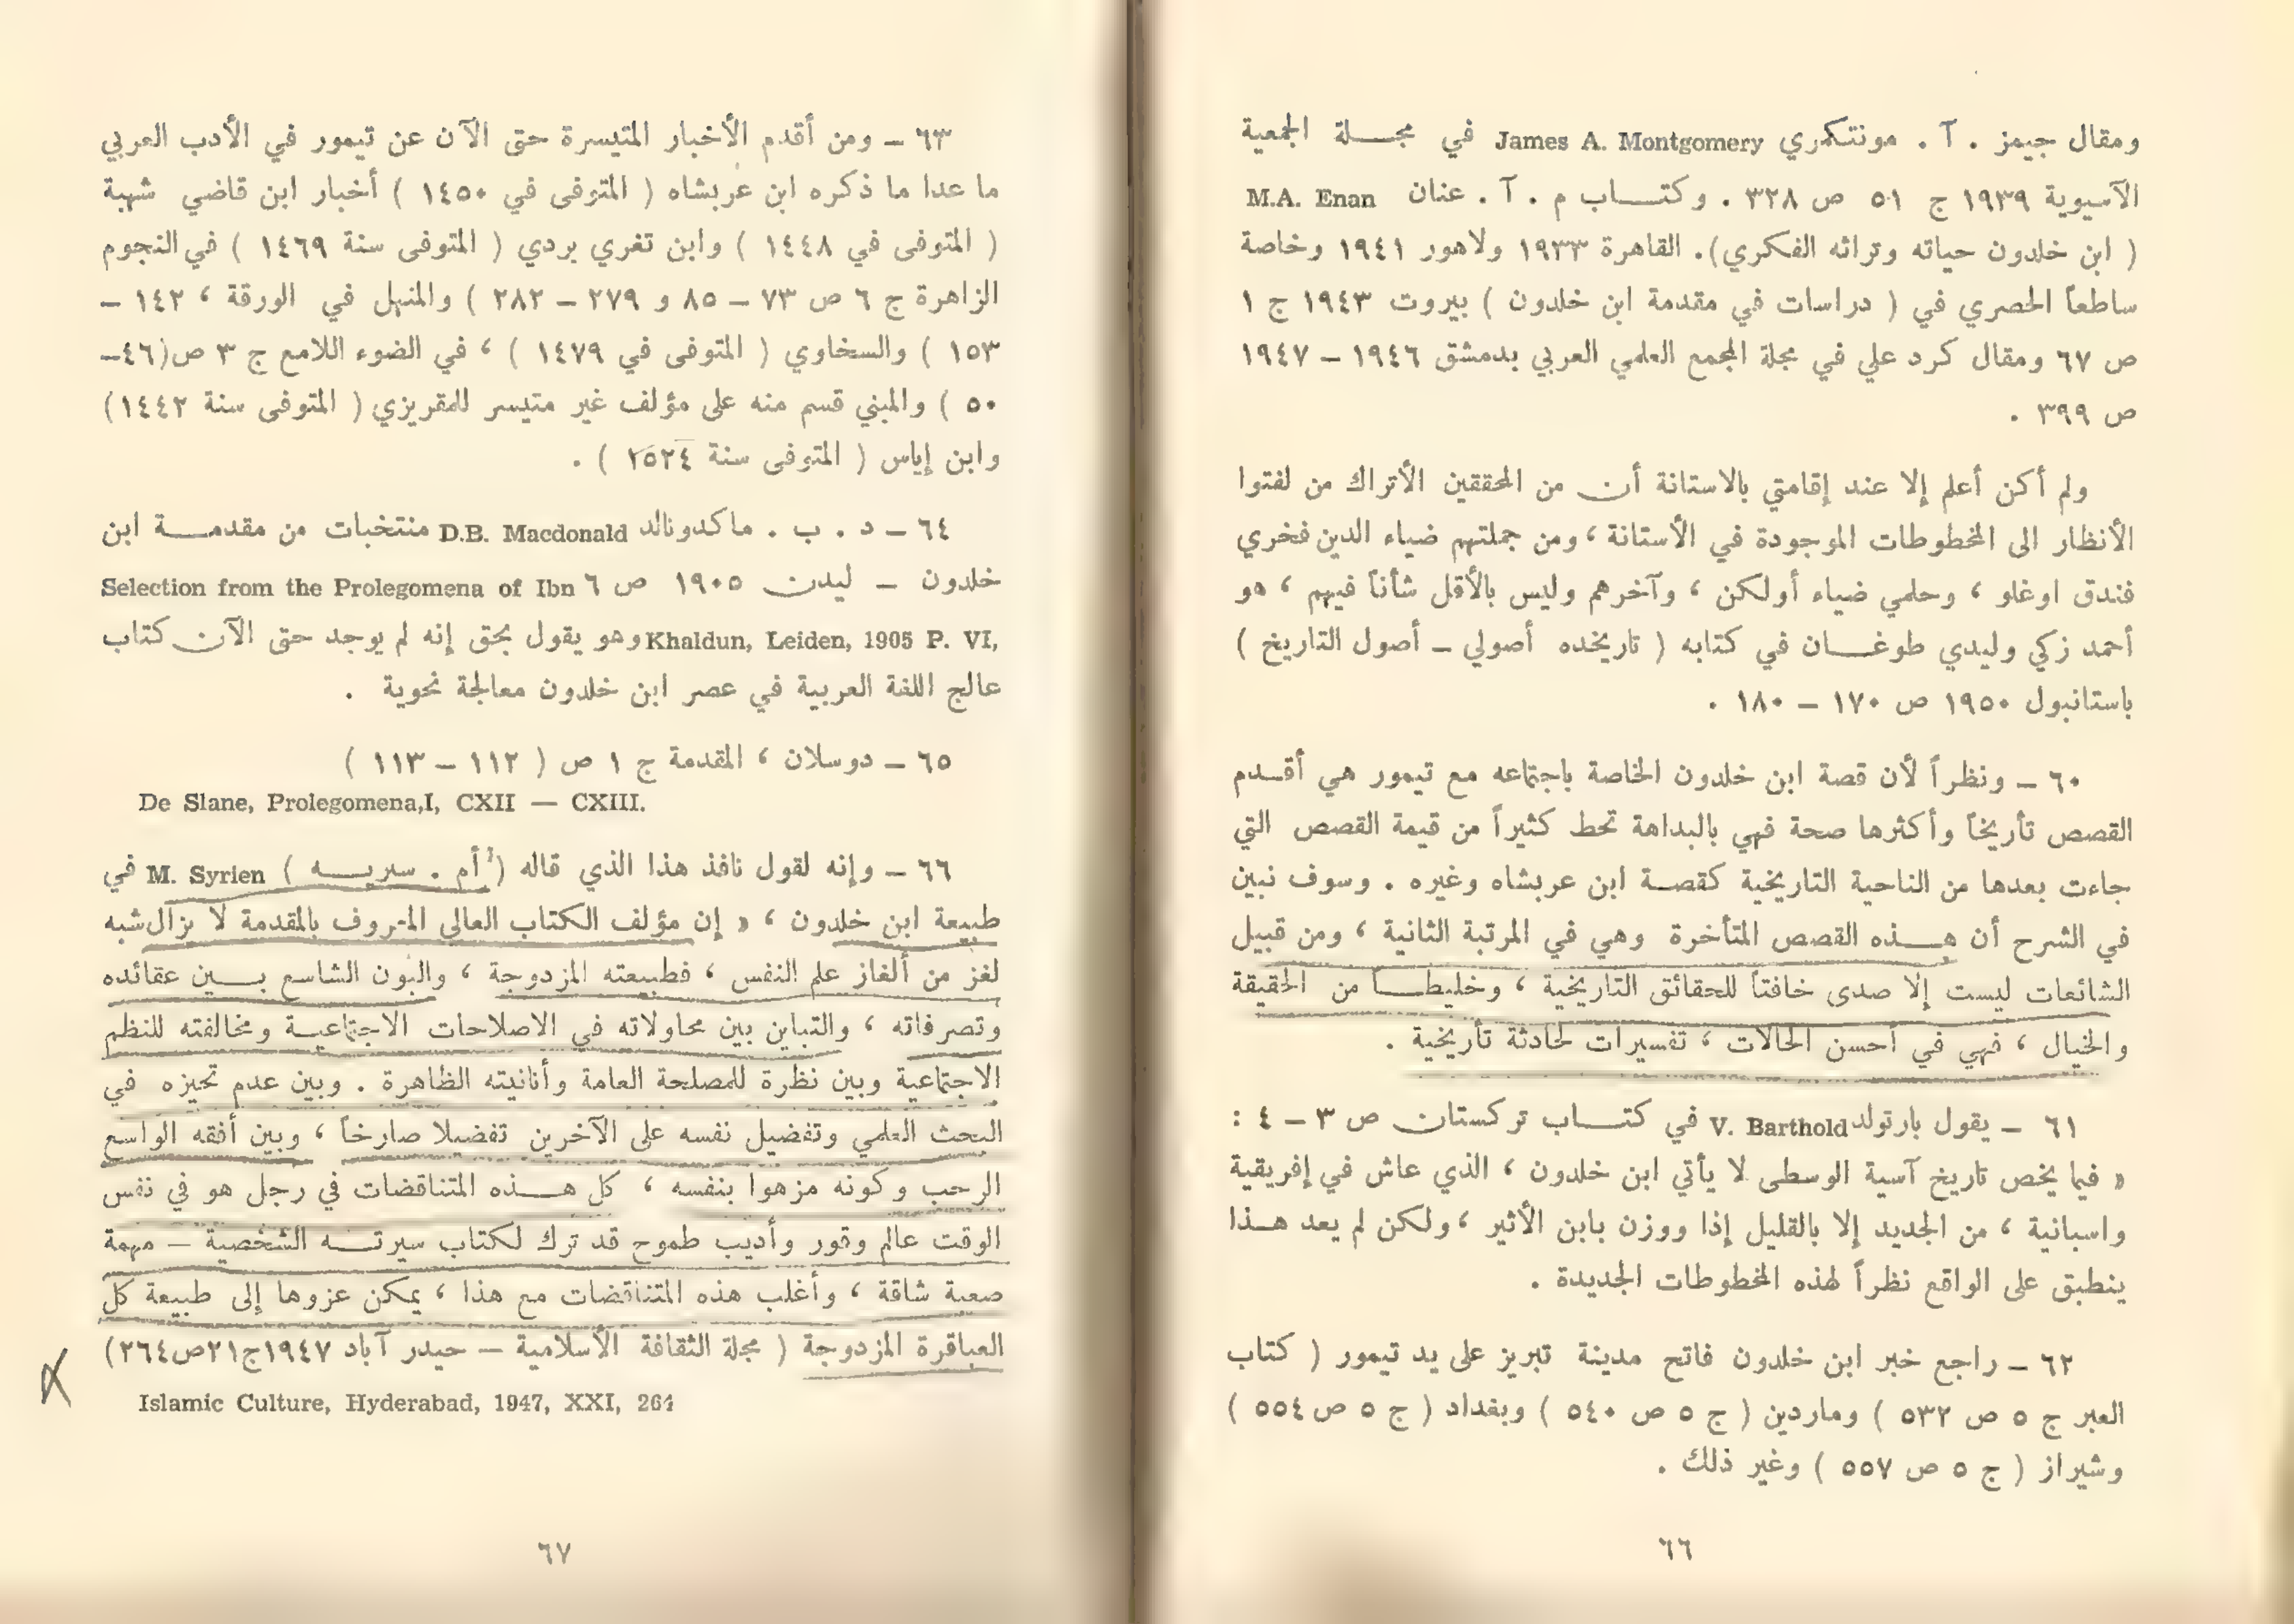 ومقال جيمز . آ . مونتكمري James A. Montgomery في مجلة الجمعية
الآسيوية ١٩٣٩ ج ٥١ ص ٣٢٨ . وكتاب م . آ . عنان M.A. Enan
( ابن خلدون حياته وتراثه الفكري). القاهرة ١٩٣٣ ولاهور ١٩٤١ وخاصة
ساطعاً الحصري في ( دراسات في مقدمة ابن خلدون ) بيروت ١٩٤٣ ج ١
ص ٦٧ ومقال كرد علي في مجلة المجمع العلمي العربي بدمشق ١٩٤٦ – ١٩٤٧
ص ٣٩٩ .
ولم أكن أعلم إلا عند إقامتي بالاستانة أن من المحققين الأتراك من لفتوا
الأنظار الى المخطوطات الموجودة في الأستانة ، ومن جملتهم ضياء الدين فخري
فندق اوغلو ، وحلمي ضياء أولكن ، وآخرهم وليس بالأقل شأناً فيهم ، هو
أحمد زكي وليدي طوغان في كتابه ( تاريخده أصولي – أصول التاريخ )
باستانبول ١٩٥٠ ص ١٧٠ – ١٨٠ .
٦٠ – ونظراً لأن قصة ابن خلدون الخاصة باجتماعه مع تيمور هي أقدم
القصص تأريخاً وأكثرها صحة فهي بالبداهة تحط كثيراً من قيمة القصص التي
جاءت بعدها من الناحية التاريخية كقصة ابن عربشاه وغيره . وسوف نبين
في الشرح أن هذه القصص المتأخرة وهي في المرتبة الثانية ، ومن قبيل
الشائعات ليست إلا صدى خافتاً للحقائق التاريخية ، وخليطاً من الحقيقة
والخيال ، فهي في أحسن الحالات ، تفسيرات لحادثة تأريخية .
٦١ – يقول بارتولد V. Barthold في كتاب تركستان ص ٣ – ٤ :
« فيما يخص تاريخ آسية الوسطى لا يأتي ابن خلدون ، الذي عاش في إفريقية
واسبانية ، من الجديد إلا بالقليل إذا ووزن بابن الأثير ، ولكن لم يعد هذا
ينطبق على الواقع نظراً لهذه المخطوطات الجديدة .
٦٢ – راجع خبر ابن خلدون فاتح مدينة تبريز على يد تيمور ( كتاب
العبر ج ٥ ص ٥٣٢ ) وماردين ( ج ٥ ص ٥٤٠ ) وبغداد ( ج ٥ ص ٥٥٤ )
وشيراز ( ج ٥ ص ٥٥٧ ) وغير ذلك .
٦٦
٦٣ – ومن أقدم الأخبار المتيسرة حتى الآن عن تيمور في الأدب العربي
ما عدا ما ذكره ابن عربشاه ( المتوفى في ١٤٥٠ ) أخبار ابن قاضي شهبة
( المتوفى في ١٤٤٨ ) وابن تغري بردي ( المتوفى سنة ١٤٦٩ ) في النجوم
الزاهرة ج ٦ ص ٧٣ – ٨٥ و ٢٧٩ – ٢٨٢ ) والمنهل في الورقة ، ١٤٢ –
١٥٣ ) والسخاوي ( المتوفى في ١٤٧٩ ) ، في الضوء اللامع ج ٣ ص (٤٦–
٥٠ ) والمبني قسم منه على مؤلف غير متيسر للمقريزي ( المتوفى سنة ١٤٤٢)
وابن إياس ( المتوفى سنة ٢٥٢٤ ) .
٦٤ – د . ب . ماكدونالد D.B. Macdonald منتخبات من مقدمة ابن
خلدون – ليدن ١٩٠٥ ص ٦ Selection from the Prolegomena of Ibn
Khaldun, Leiden, 1905 P. VI, وهو يقول بحق إنه لم يوجد حتى الآن كتاب
عالج اللغة العربية في عصر ابن خلدون معالجة نحوية .
٦٥ – دوسلان ، المقدمة ج ١ ص ( ١١٢ – ١١٣ )
De Slane, Prolegomena,I, CXII — CXIII.
٦٦ – وإنه لقول نافذ هذا الذي قاله ( أم . سريه ) M. Syrien في
طبيعة ابن خلدون ، « إن مؤلف الكتاب العالي المعروف بالمقدمة لا يزال شبه
لغز من ألغاز علم النفس ، فطبيعته المزدوجة ، والبون الشاسع بين عقائده
وتصرفاته ، والتباين بين محاولاته في الاصلاحات الاجتماعية ومخالفته للنظم
الاجتماعية وبين نظرة للمصلحة العامة وأنانيته الظاهرة . وبين عدم تحيزه في
البحث العلمي وتفضيل نفسه على الآخرين تفضيلا صارخاً ، وبين أفقه الواسع
الرحب وكونه مزهوا بنفسه ، كل هذه المتناقضات في رجل هو في نفس
الوقت عالم وقور وأديب طموح قد ترك لكتاب سيرته الشخصية – مهمة
صعبة شاقة ، وأغلب هذه المتناقضات مع هذا ، يمكن عزوها إلى طبيعة كل
العباقرة المزدوجة ( مجلة الثقافة الأسلامية – حيدر آباد ١٩٤٧ج٢١ص٢٦٤)
Islamic Culture, Hyderabad, 1947, XXI, 264
٦٧